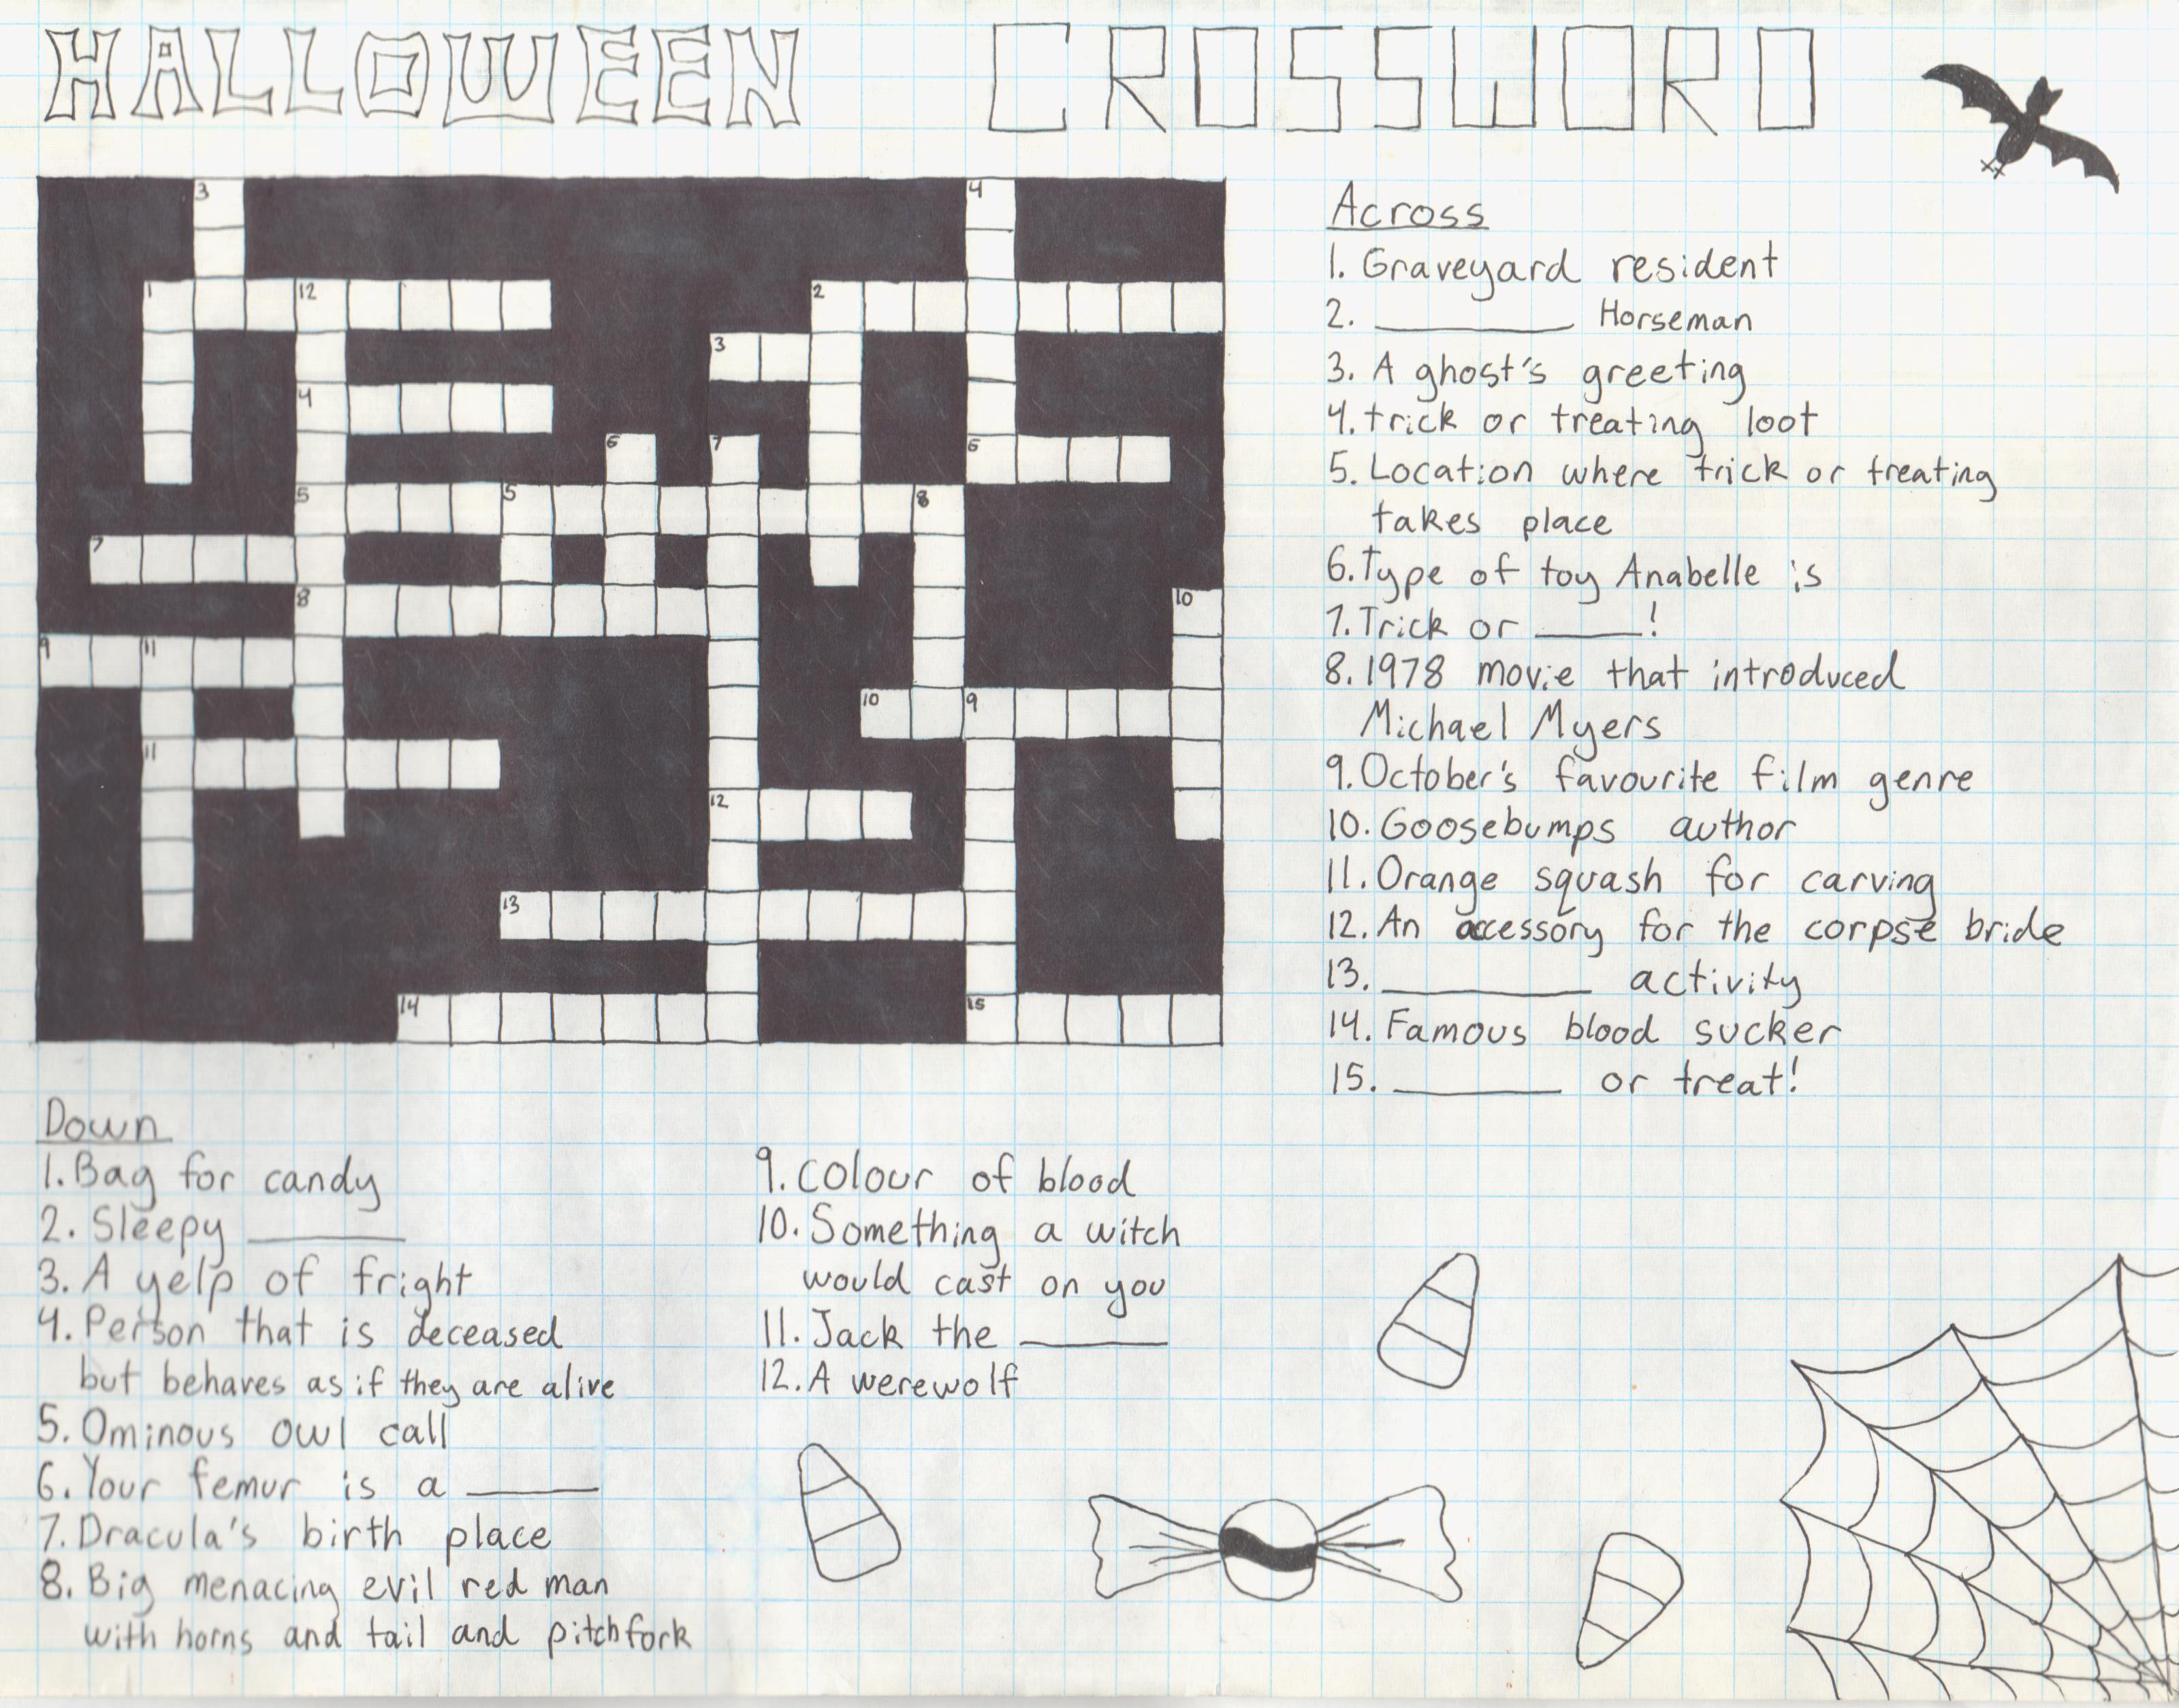 HALLOWEEN CROSSWORD
3 4
1 12 2
3
4
6 7 6
5 5 8
7
8 10
9 11
10 9
11
12
13
14 15
Across
1. Graveyard resident
2. ________ Horseman
3. A ghost's greeting
4. trick or treating loot
5. Location where trick or treating
takes place
6. Type of toy Anabelle is
7. Trick or _____!
8. 1978 movie that introduced
Michael Myers
9. October's favourite film genre
10. Goosebumps author
11. Orange squash for carving
12. An accessory for the corpse bride
13. _________ activity
14. Famous blood sucker
15. _______ or treat!
Down
1. Bag for candy
2. Sleepy _______
3. A yelp of fright
4. Person that is deceased
but behaves as if they are alive
5. Ominous owl call
6. Your femur is a ______
7. Dracula's birth place
8. Big menacing evil red man
with horns and tail and pitchfork
9. colour of blood
10. Something a witch
would cast on you
11. Jack the ______
12. A werewolf